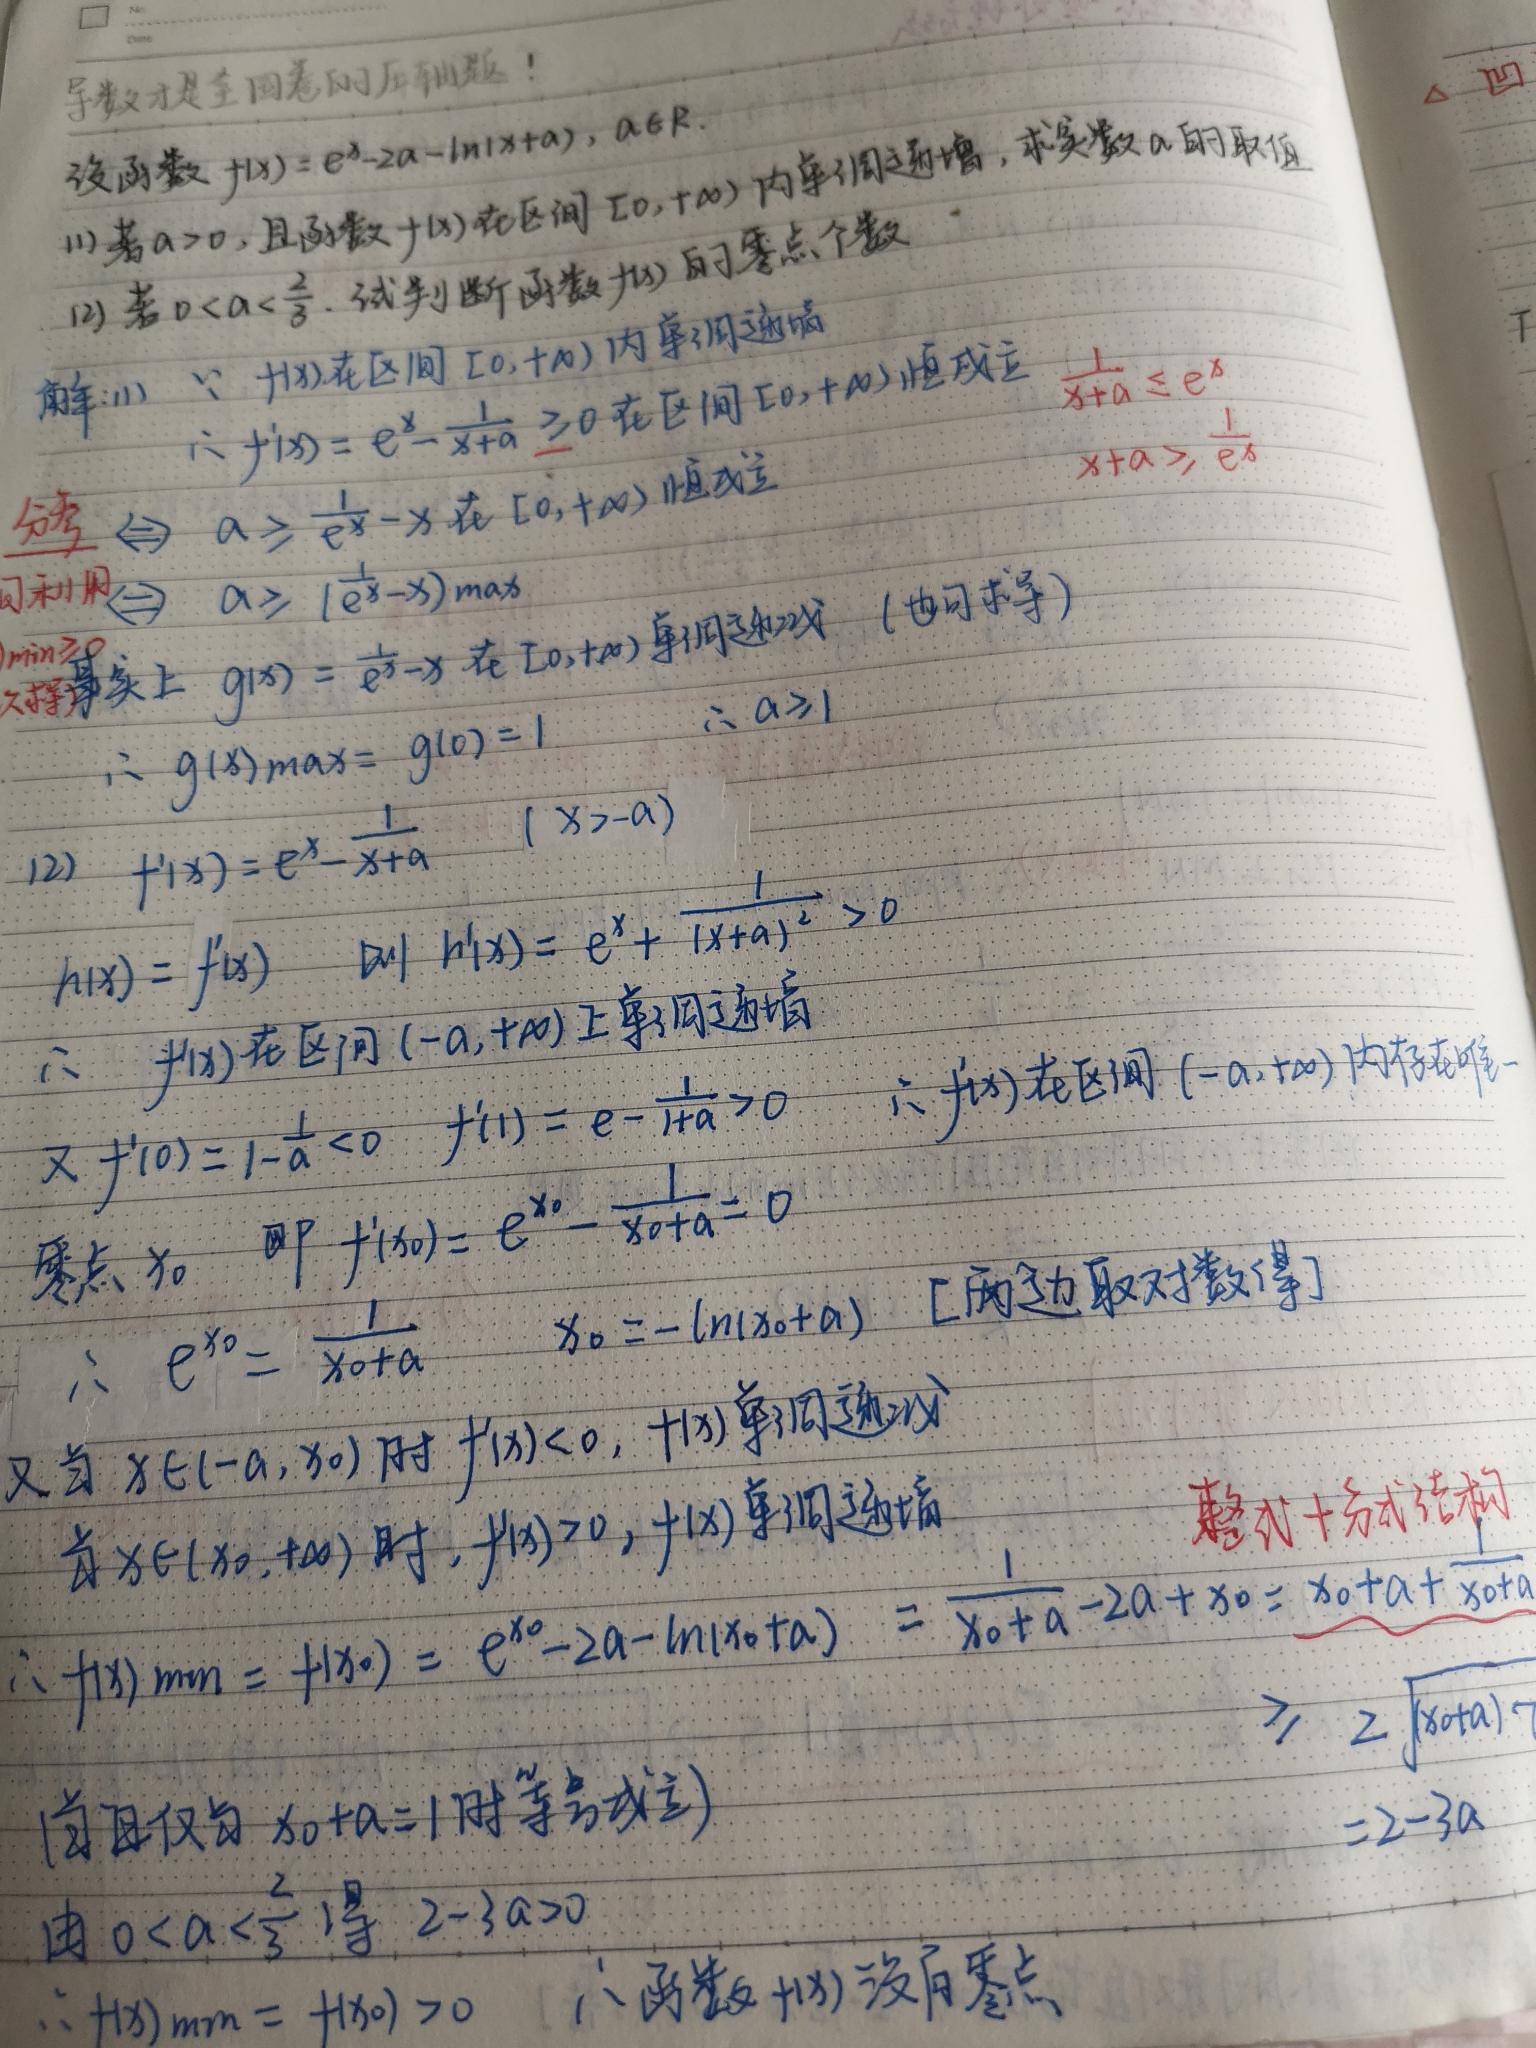 No.
Date
导数才是全国卷的压轴题!
设函数 f(x)=e^x-2a-ln(x+a), a∈R.
(1) 若a>0, 且函数f(x)在区间[0,+∞)内单调递增, 求实数a的取值
(2) 若 0<a<2/3. 试判断函数f(x)的零点个数
解:(1) ∵ f(x)在区间[0,+∞)内单调递增
∴ f'(x)=e^x-1/(x+a)≥0在区间[0,+∞)恒成立
1/(x+a)≤e^x
x+a≥1/e^x
分离 ⇔ a≥1/e^x-x在[0,+∞)恒成立
可利用 ⇔ a≥(1/e^x-x)max
)min≥0
事实上 g(x)=1/e^x-x在[0,+∞)单调递减 (也可求导)
次求导
∴ g(x)max=g(0)=1 ∴ a≥1
(2) f'(x)=e^x-1/(x+a) (x>-a)
h(x)=f'(x) 则 h'(x)=e^x+1/(x+a)²>0
∴ f'(x)在区间(-a,+∞)上单调递增
又f'(0)=1-1/a<0 f'(1)=e-1/(1+a)>0 ∴ f'(x)在区间(-a,+∞)内存在唯一
零点x₀ 即f'(x₀)=e^x₀-1/(x₀+a)=0
∴ e^x₀=1/(x₀+a) x₀=-ln(x₀+a) [两边取对数得]
又当x∈(-a,x₀)时f'(x)<0, f(x)单调递减
当x∈(x₀,+∞)时, f'(x)>0, f(x)单调递增
整式+分式结构
∴ f(x)min=f(x₀)=e^x₀-2a-ln(x₀+a)=1/(x₀+a)-2a+x₀=x₀+a+1/(x₀+a)
≥2√(x₀+a)
(当且仅当x₀+a=1时等号成立)
=2-3a
由0<a<2/3得 2-3a>0
∴ f(x)min=f(x₀)>0 ∴函数f(x)没有零点
△ 凹